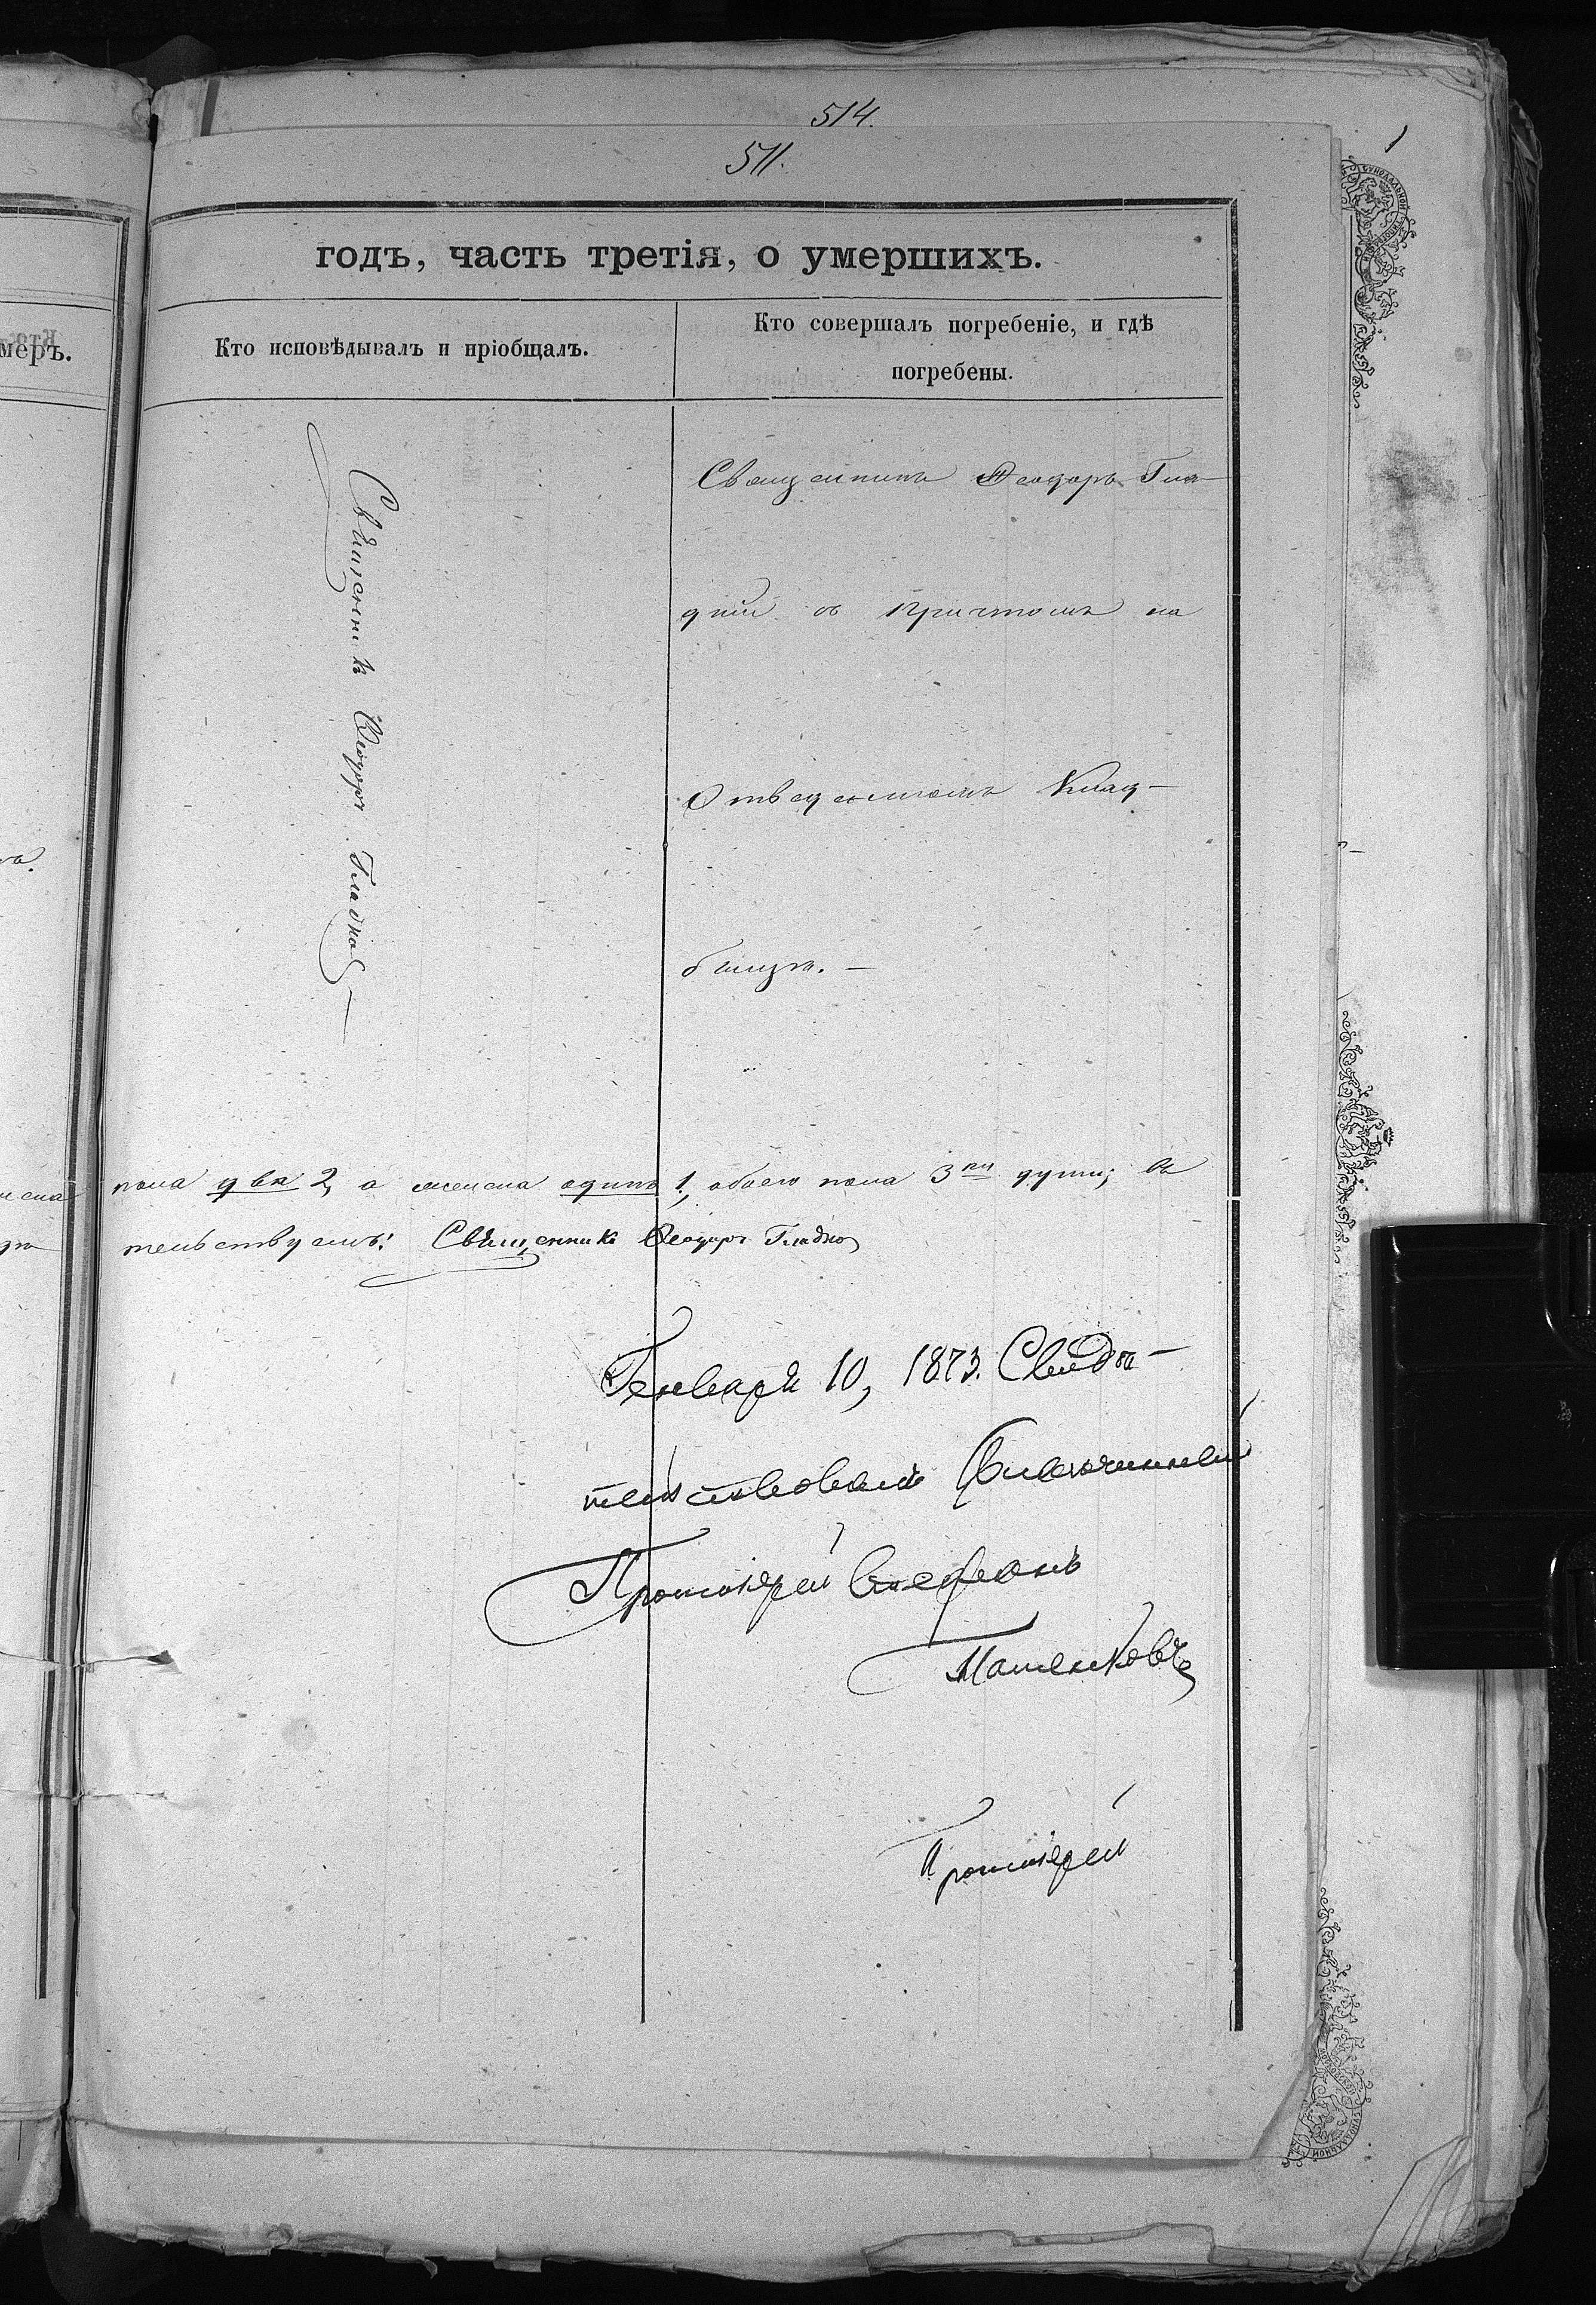 514.
511.
1
годъ, часть третія, о умершихъ.
меръ.
Кто исповѣдывалъ и пріобщалъ.
Кто совершалъ погребеніе, и гдѣ
погребены.
Священникъ Ѳеодоръ Гладко
Священникъ Ѳеодоръ Гла-
съ Причтомъ на
Отведенномъ Клад-
бищѣ. —
пола два 2, а женска одинъ 1, обоего пола 3 ри души;
тельствуемъ: Священникъ Ѳеодоръ Гладко
Генваря 10, 1873. Свидѣ-
тельствовалъ Благочинный
Протоіерей Стефанъ
Протоіерей